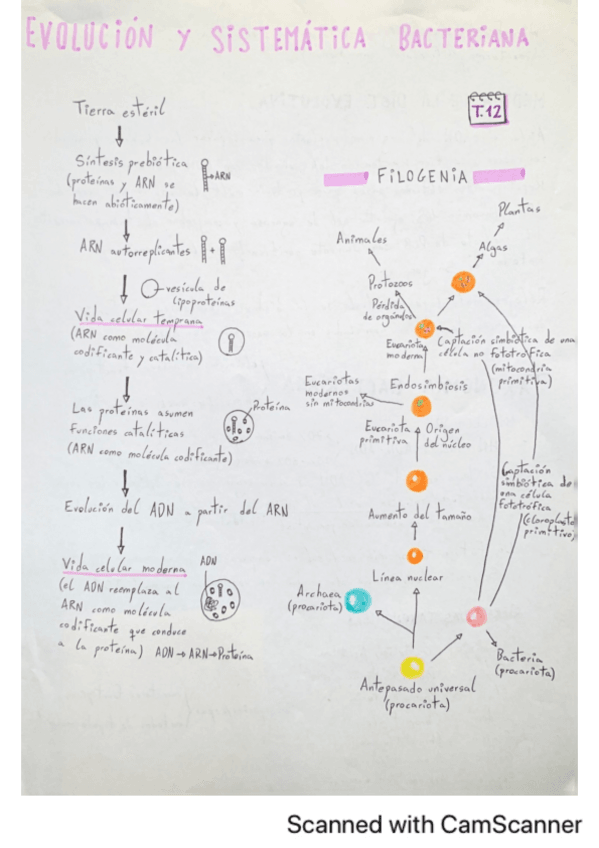 EVOLUCIÓN Y SISTEMÁTICA BACTERIANA
T.12
Tierra estéril
Síntesis prebiótica
(proteínas y ARN se
hacen abióticamente)
ARN
ARN autorreplicantes
+
vesícula de
lipoproteínas
Vida celular temprana
(ARN como molécula
codificante y catalítica)
Las proteínas asumen
funciones catalíticas
(ARN como molécula codificante)
Proteína
Evolución del ADN a partir del ARN
Vida celular moderna
(el ADN reemplaza al
ARN como molécula
codificante que conduce
a la proteína) ADN → ARN → Proteína
ADN
FILOGENIA
Plantas
Animales
Algas
Protozoos
Pérdida
de orgánulos
Eucariota
moderna
Captación simbiótica de una
célula no fototrófica
(mitocondria
primitiva)
Eucariotas
modernos
sin mitocondrias
Endosimbiosis
Eucariota
primitiva
Origen
del núcleo
Captación
simbiótica de
una célula
fototrófica
(cloroplasto
primitivo)
Aumento del tamaño
Línea nuclear
Archaea
(procariota)
Bacteria
(procariota)
Antepasado universal
(procariota)
Scanned with CamScanner